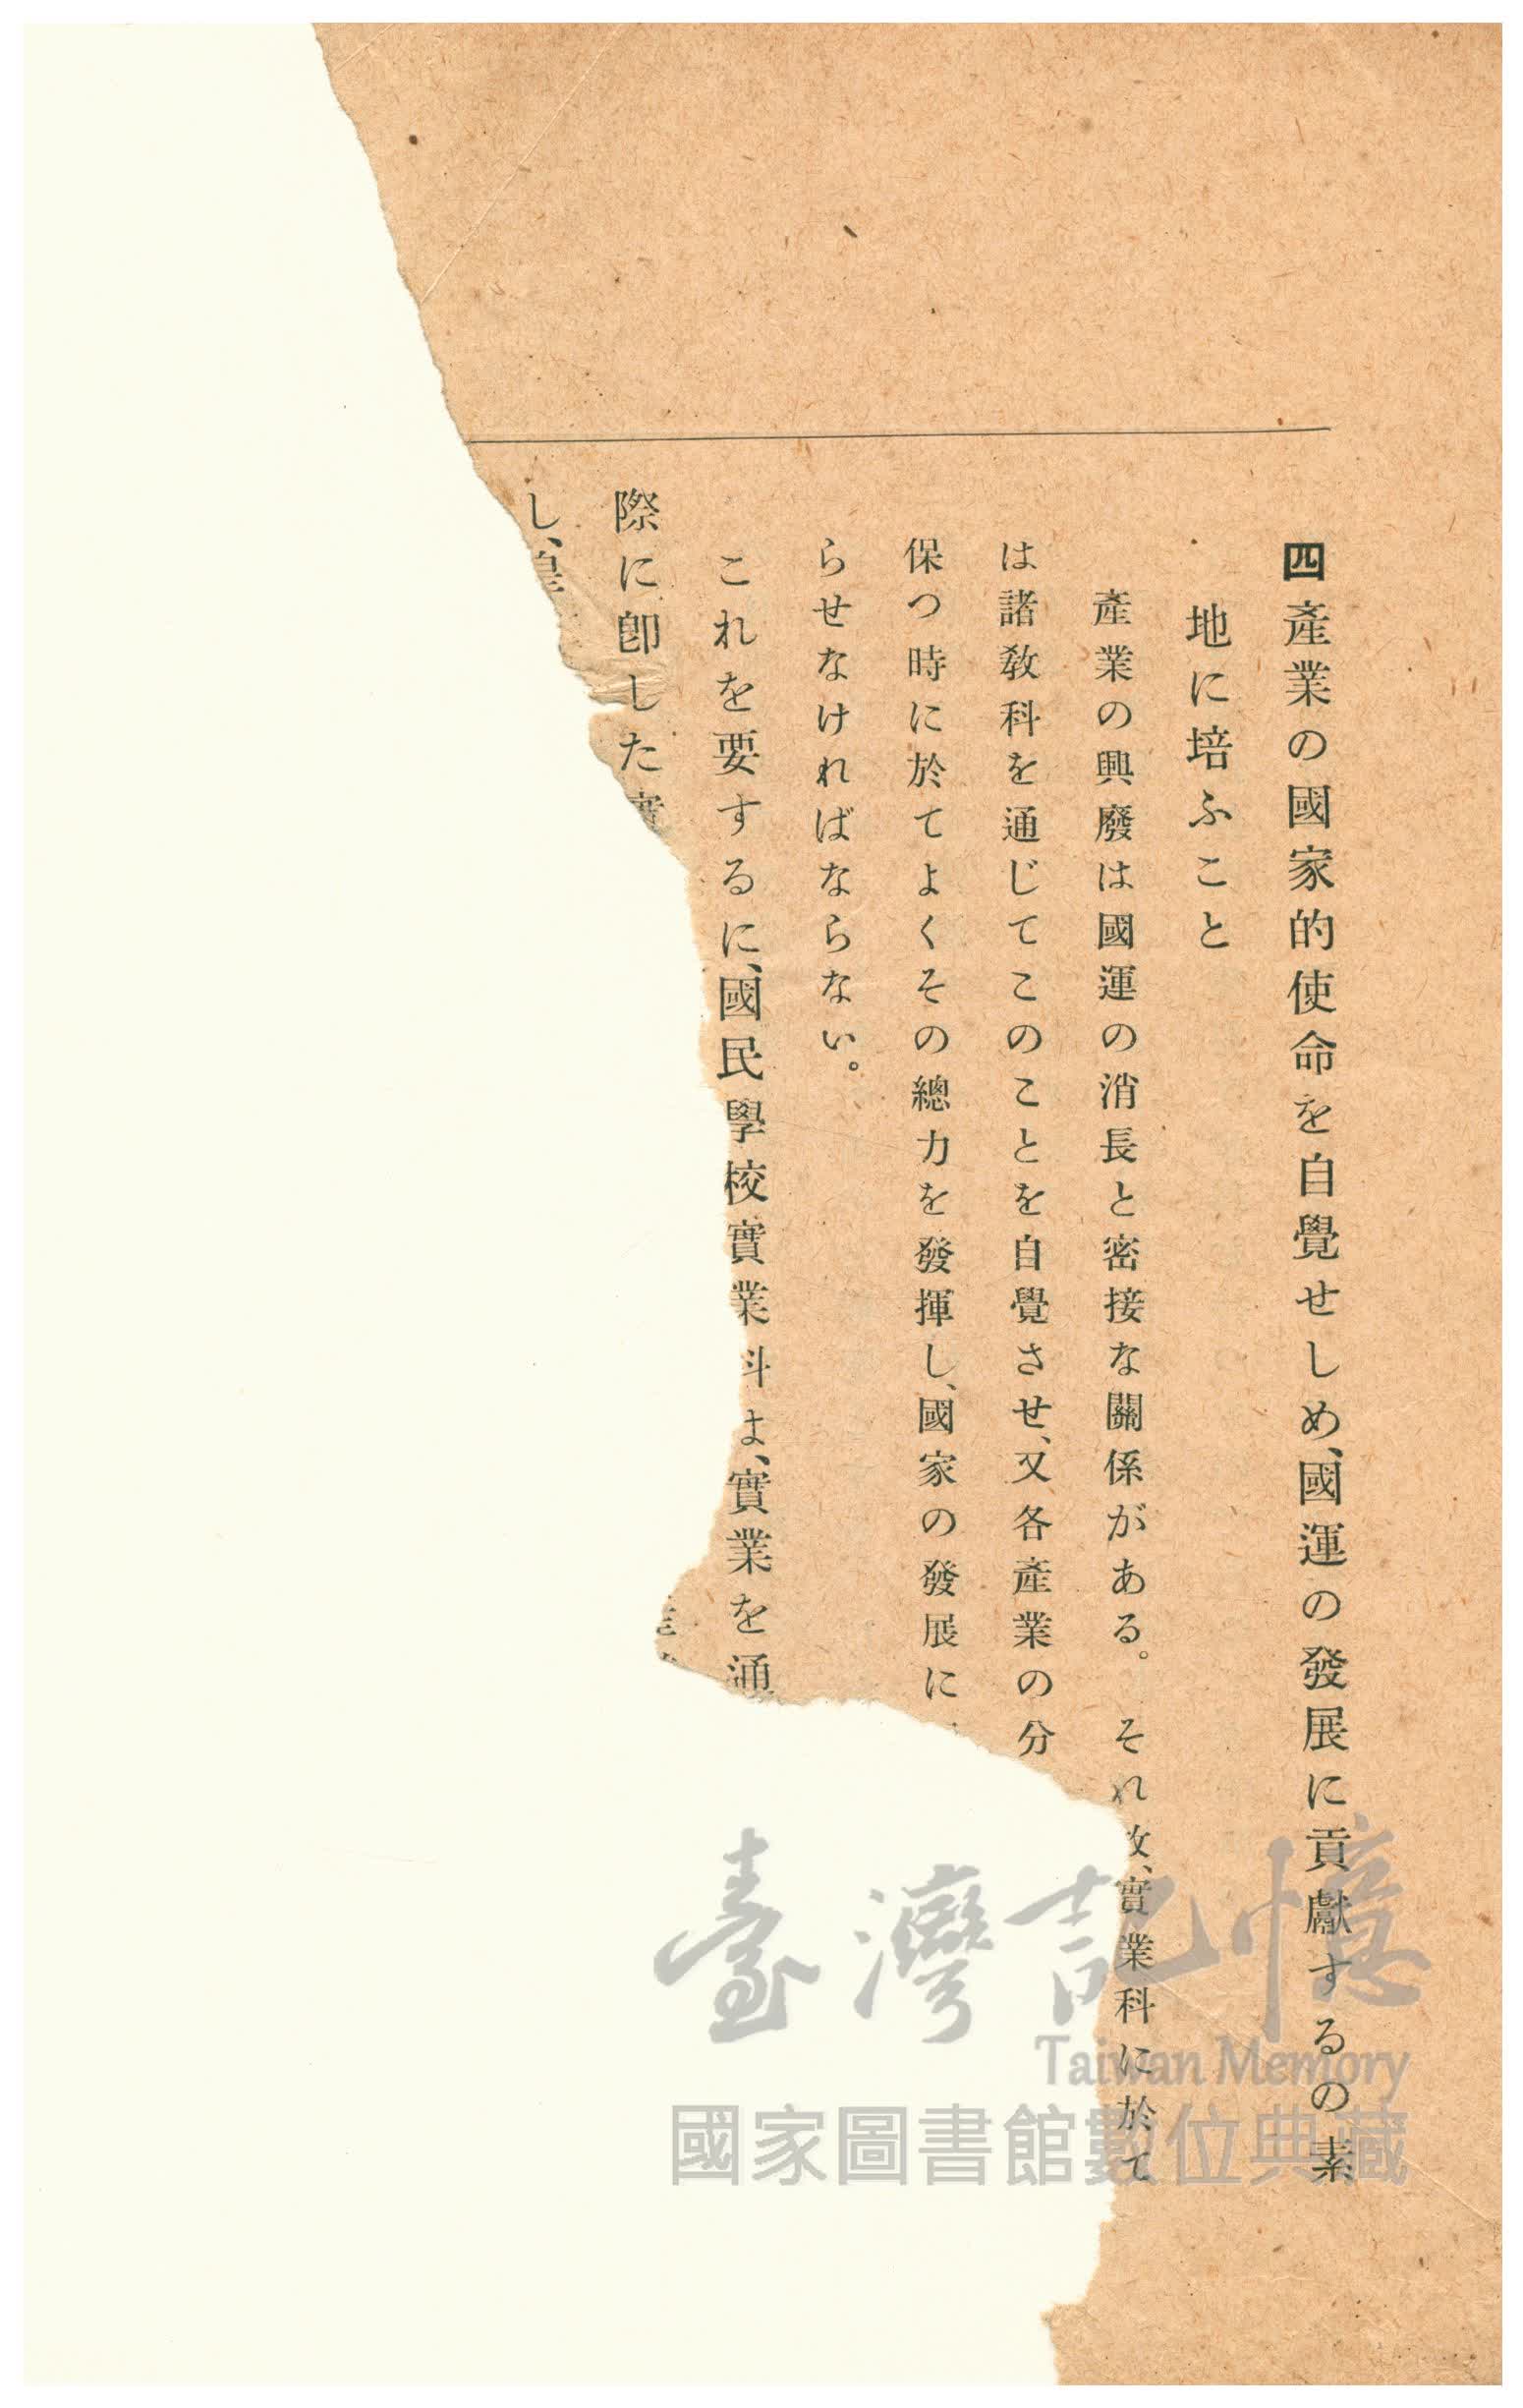 四產業の國家的使命を自覺せしめ、國運の發展に貢獻するの素
地に培ふこと
產業の興廢は國運の消長と密接な關係がある。それ故、實業科に於て
は諸教科を通じてこのことを自覺させ、又各產業の分
保つ時に於てよくその總力を發揮し、國家の發展に
らせなければならない。
これを要するに、國民學校實業科は、實業を通
際に卽した實
し、皇
臺灣記憶
Taiwan Memory
國家圖書館數位典藏